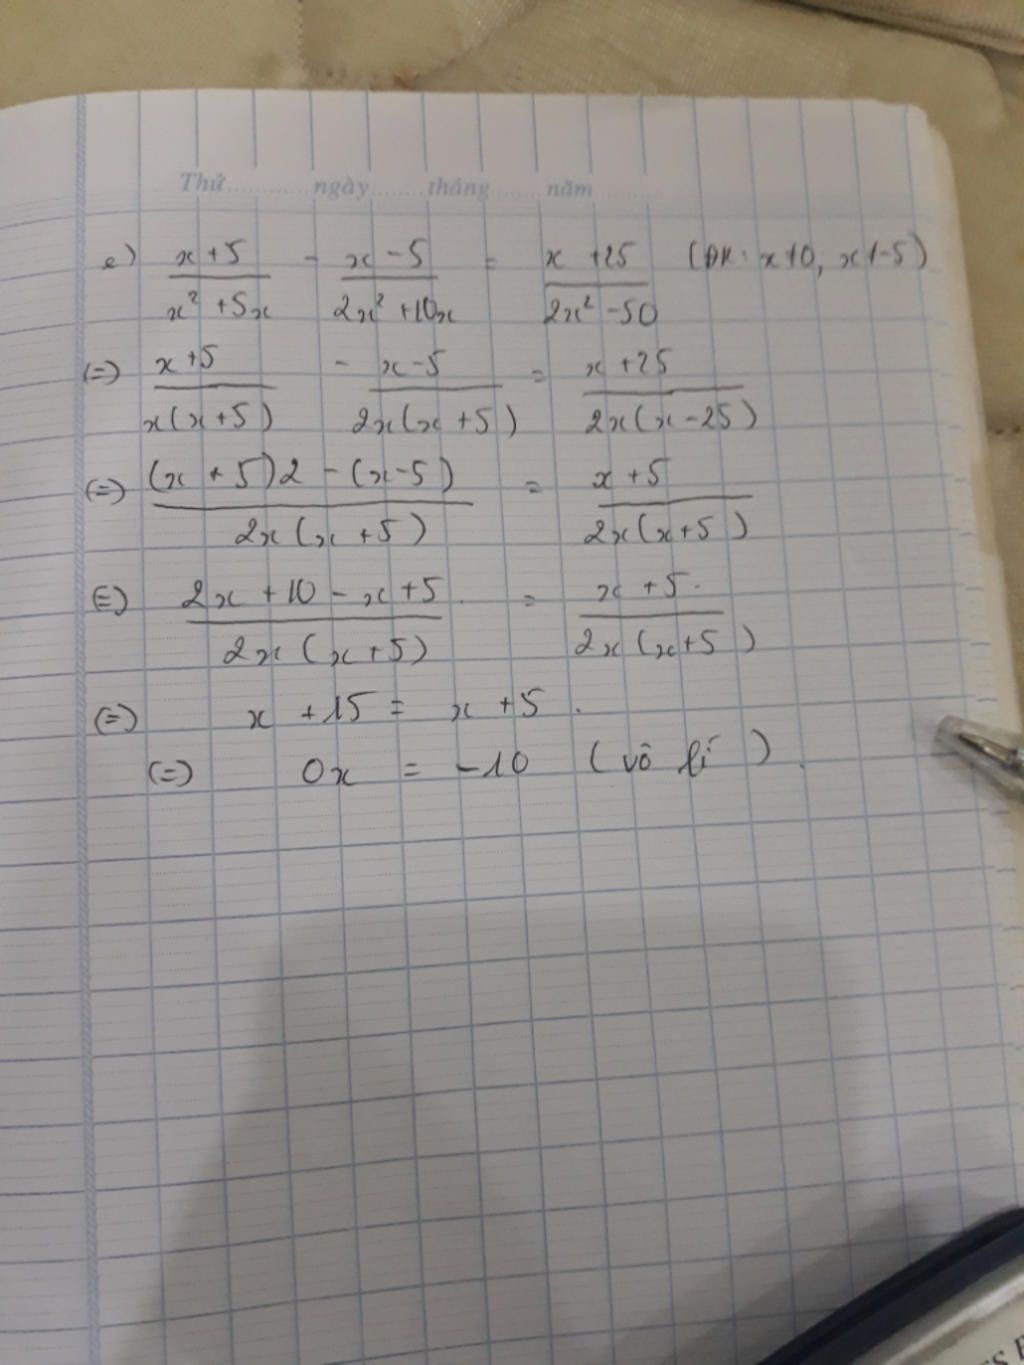 Thứ............ngày........tháng.......năm............
e) (x+5)/(x²+5x) - (x-5)/(2x²+10x) = (x+25)/(2x²-50) (ĐK: x≠0, x≠-5)
(=) (x+5)/(x(x+5)) - (x-5)/(2x(x+5)) = (x+25)/(2x(x-25))
(=) ((x+5)2-(x-5))/(2x(x+5)) = (x+5)/(2x(x+5))
(=) (2x+10-x+5)/(2x(x+5)) = (x+5)/(2x(x+5))
(=) x+15 = x+5.
(=) 0x = -10 (vô lí)